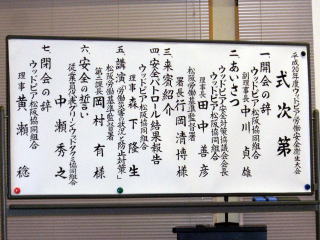 平成20年度ウッドピア労働安全衛生大会
式次第
一.開会の辞
ウッドピア松阪協同組合
副理事長 中川貞雄
二.あいさつ
ウッドピア安全対策協議会会長
ウッドピア松阪協同組合
理事長 田中善彦
三.来賓紹介
松阪労働基準監督署
署長 行岡清博様
四.安全パトロール結果報告
ウッドピア松阪協同組合
理事 森下隆生
五.講演「労働災害の状況と防止対策」
松阪労働基準監督署
第二課長 岡村有様
六.安全の誓い
従業員代表 ウッドピア協同組合
中瀬秀之
七.閉会の辞
ウッドピア松阪協同組合
理事 黄瀬稔